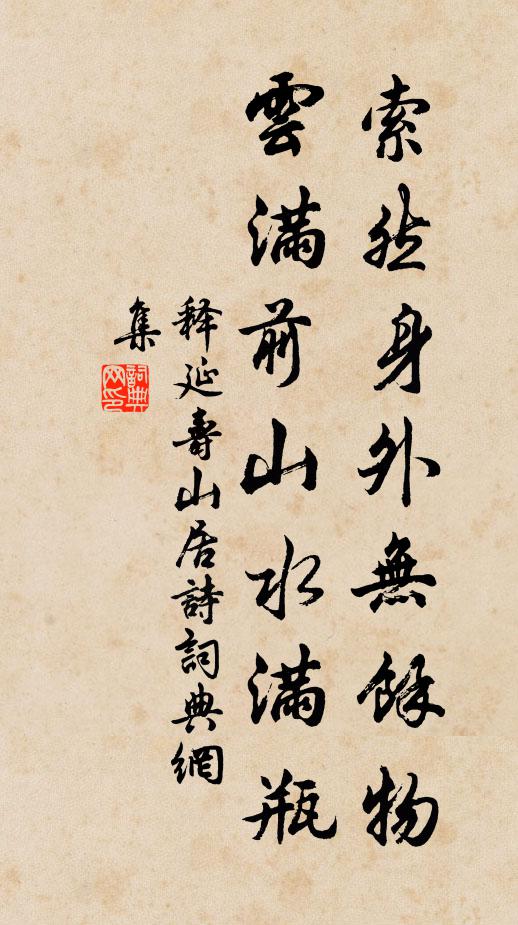 索然身外無餘物
雲滿前山水滿瓶
釋延壽山居詩詞典網
集
詞典網印